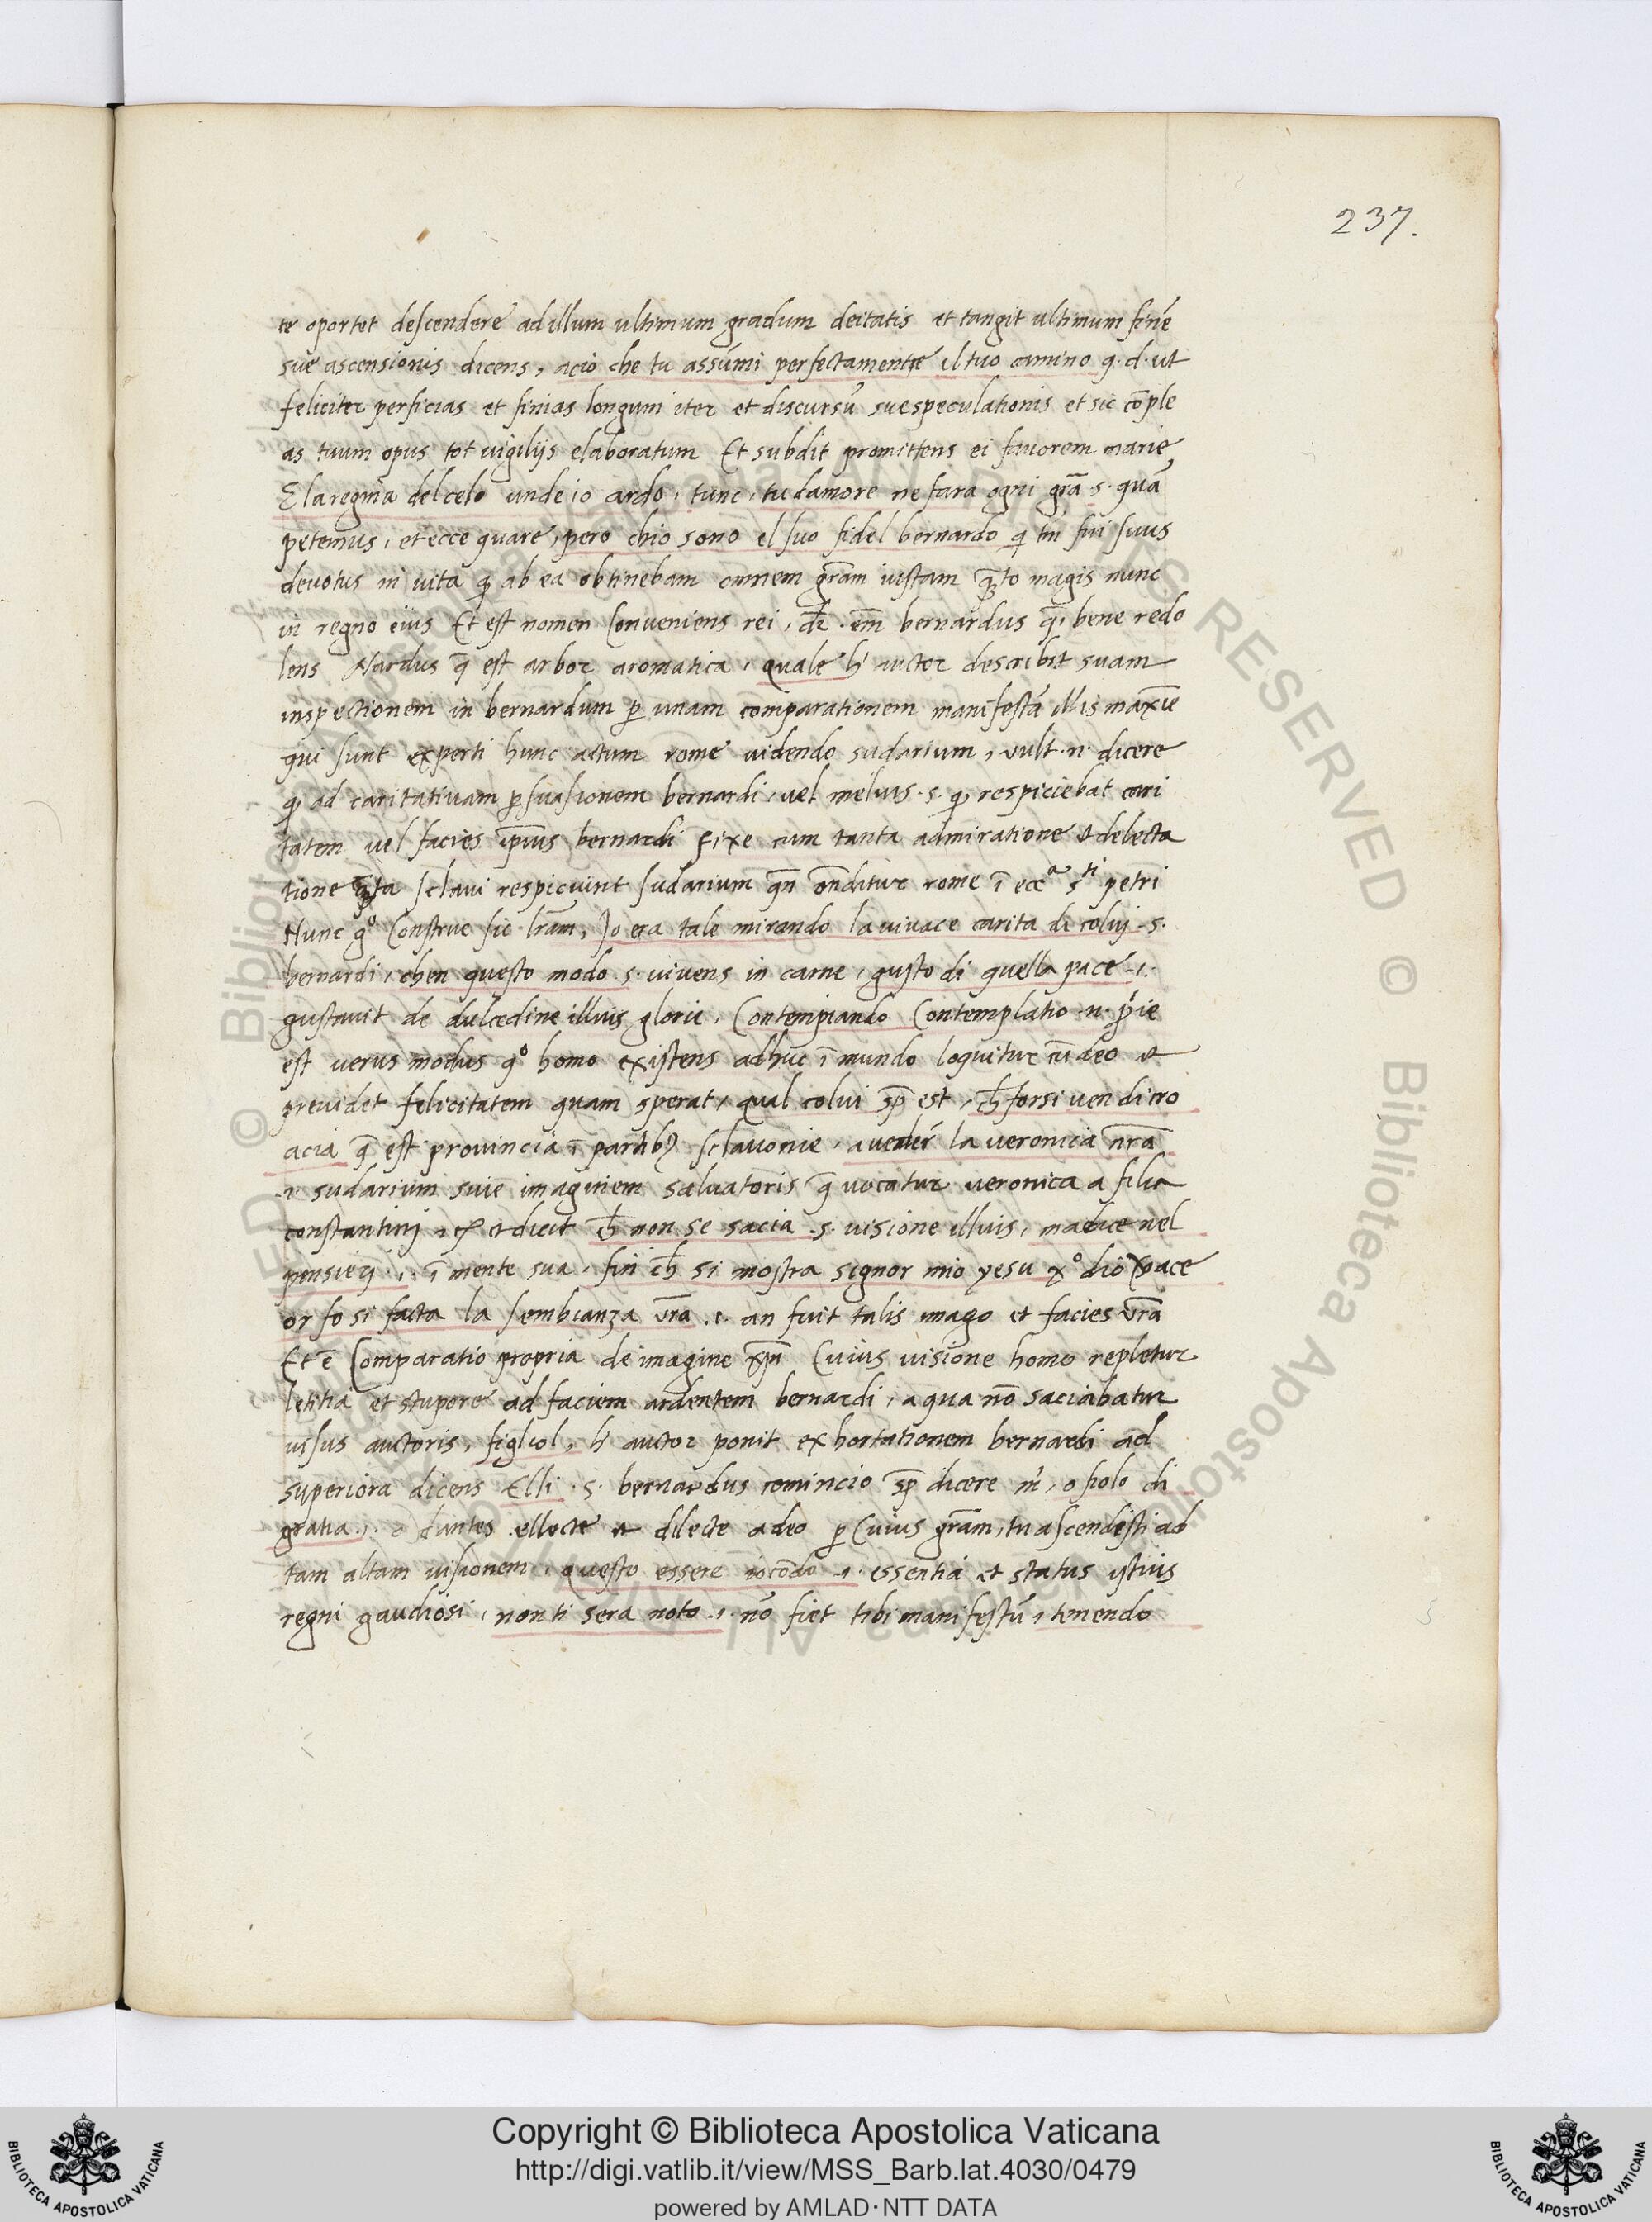 237.
te oportet descendere ad illum ultimum gradum deitatis et tangit ultimum finē
sue ascensionis dicens, acio che tu assumi perfectamente il tuo camino q. d. ut
feliciter perficias et finias longum iter et discursū sue speculationis et sic cōple
as tuum opus tot vigilijs elaboratum Et subdit promittens ei favorem marie
E la regina del celo unde io ardo, tunc, tu damore ne fara ogni grā .s. quā
petemus, et ecce quare, pero chio sono el suo fidel bernardo q tm̄ fui suus
devotus in vita q ab ea obtinebam omnem grām iustam q̄to magis nunc
in regno eius Et est nomen Conveniens rei, dr̄ .em̄ bernardus q̄i bene redo
lens Nardus q̄ est arbor aromatica, quale h̄ auctor describit suam
inspectionem in bernardum p unam comparationem manifestā illis maxīe
qui sunt experti hunc actum rome videndo sudarium, vult .n. dicere
q ad caritativam psuasionem bernardi, vel melius .s. q respiciebat cari
tatem vel facies ip̄ius bernardi fixe cum tanta admiratione et delecta
tione q̄ta sclavi respiciunt sudarium qn̄ ōnditur rome ī ecc.ª s.ti petri
Nunc gº Construe sic lrām, Jo era tale mirando la vivace carita di colvj .s.
bernardi, chen questo modo .s. vivens in carne, gusto di quella pace .i.
gustavit de dulcedine illius glorie, Contempiando Contemplatio .n. pp̄ie
est verus modus qº homo existens adhuc ī mundo loquitur cū deo et
previdet felicitatem quam sperat, qual colui sp̄ est, ch̄ forsi ven di cro
acia q̄ est provincia ī partibȝ sclavonie, a veder la veronica nr̄a
.i. sudarium sive imaginem salvatoris q̄ vocatur veronica a filia
constantinj, et dicit ch̄ non se sacia .s. visione illius, ma dice nel
pensierj .i. ī mente sua, fin ch̄ si mostra signor mio yesu xº dio verace
or fo si facta la sembianza vr̄a .i. an fuit talis imago et facies vr̄a
Et ē Comparatio propria de imagine xp̄i Cuius visione homo repletur
letitia et stupore ad faciem ardentem bernardi, a qua nō saciabatur
visus auctoris, figliol, h̄ auctor ponit exhortationem bernardi ad
superiora dicens Elli .s. bernardus comincio sp̄ dicere m̄, o fiolo di
gratia .i. o dantes ellecte et dilecte a deo p Cuius grām, tu ascendisti ad
tam altam visionem, questo essere iocōdo .i. essentia et status istius
regni gaudiosi, non ti sera noto .i. nō fiet tibi manifestū, tenendo
Copyright © Biblioteca Apostolica Vaticana
http://digi.vatlib.it/view/MSS_Barb.lat.4030/0479
powered by AMLAD·NTT DATA
BIBLIOTECA APOSTOLICA VATICANA
BIBLIOTECA APOSTOLICA VATICANA